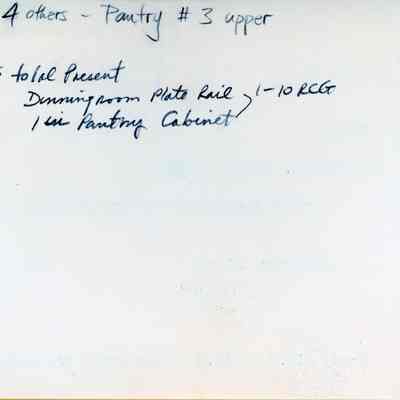 4 others - Pantry # 3 upper
total Present
Dinningroom Plate Rail } 1-10 RCG
1 in Pantry Cabinet